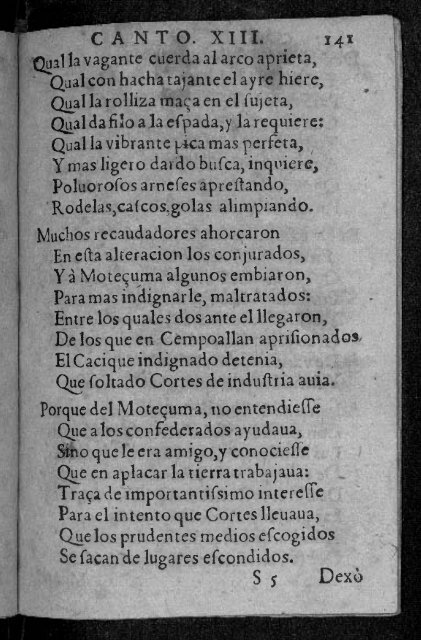 CANTO. XIII. 141
Qual la vagante cuerda al arco aprieta,
Qual con hacha tajante el ayre hiere,
Qual la rolliza maça en el ſujeta,
Qual da filo a la eſpada, y la requiere:
Qual la vibrante pica mas perfeta,
Y mas ligero dardo buſca, inquiere,
Poluoroſos arneſes apreſtando,
Rodelas, caſcos, golas alimpiando.
Muchos recaudadores ahorcaron
En eſta alteracion los conjurados,
Y à Moteçuma algunos embiaron,
Para mas indignarle, maltratados:
Entre los quales dos ante el llegaron,
De los que en Cempoallan apriſionados
El Cacique indignado detenia,
Que ſoltado Cortes de induſtria auia.
Porque del Moteçuma, no entendieſſe
Que a los confederados ayudaua,
Sino que le era amigo, y conocieſſe
Que en aplacar la tierra trabajaua:
Traça de importantiſsimo intereſſe
Para el intento que Cortes lleuaua,
Que los prudentes medios eſcogidos
Se ſacan de lugares eſcondidos.
S 5 Dexò